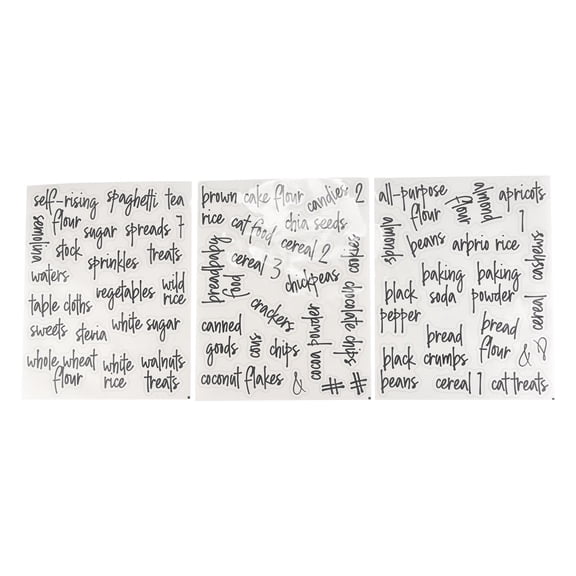 self-rising flour
spaghetti
tea
semolina
sugar
spreads
7
stock
sprinkles
treats
waters
vegetables
wild rice
table cloths
sweets
steria
white sugar
whole wheat flour
white rice
walnuts
treats
brown rice
cake flour
candies
2
cat food
chia seeds
breadpady
cereal 2
cookies
cereal 3
pay
chickpeas
crackers
chocolate chips
canned goods
cans
chips
cocoa powder
coconut flakes
&
#
#
all-purpose flour
almond flour
apricots
1
spounouip
beans
arbrio rice
cashews
baking soda
baking powder
black pepper
cereal
bread crumbs
bread flour
&
black beans
cereal 1
cat treats